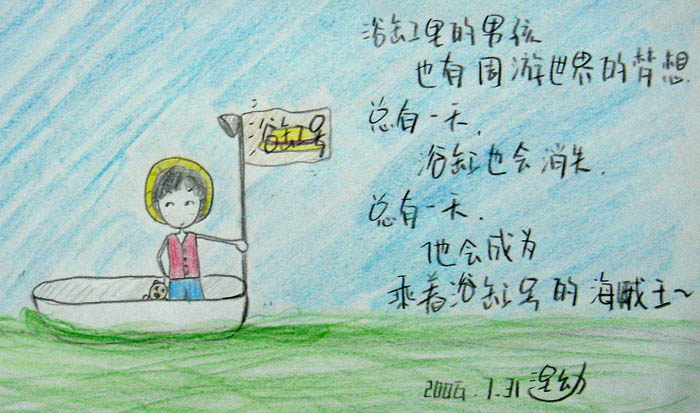 浴缸号
浴缸里的男孩
也有周游世界的梦想.
总有一天,
浴缸也会消失.
总有一天.
他会成为
乘着浴缸号的海贼王~
1.31